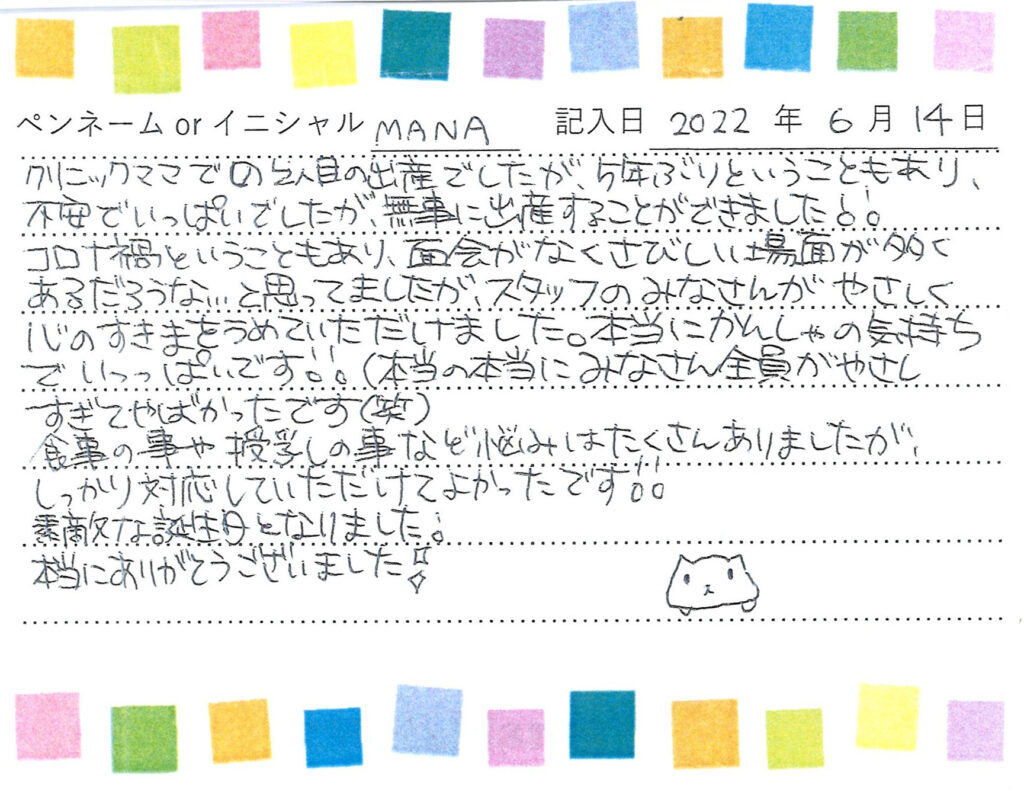 ペンネーム or イニシャル MANA 記入日 2022 年 6 月 14 日
クリニックママでの2人目の出産でしたが、5年ぶりということもあり、
不安でいっぱいでしたが、無事に出産することができました!!
コロナ禍ということもあり、面会がなくさびしい場面が多く
あるだろうな…と思ってましたが、スタッフのみなさんがやさしく
心のすきまをうめていただけました。本当にかんしゃの気持ち
でいっっぱいです!!(本当の本当にみなさん全員がやさし
すぎてやばかったです(笑)
食事の事や授乳しの事など悩みはたくさんありましたが、
しっかり対応していただけてよかったです!!
素敵な誕生日となりました!
本当にありがとうございました!!